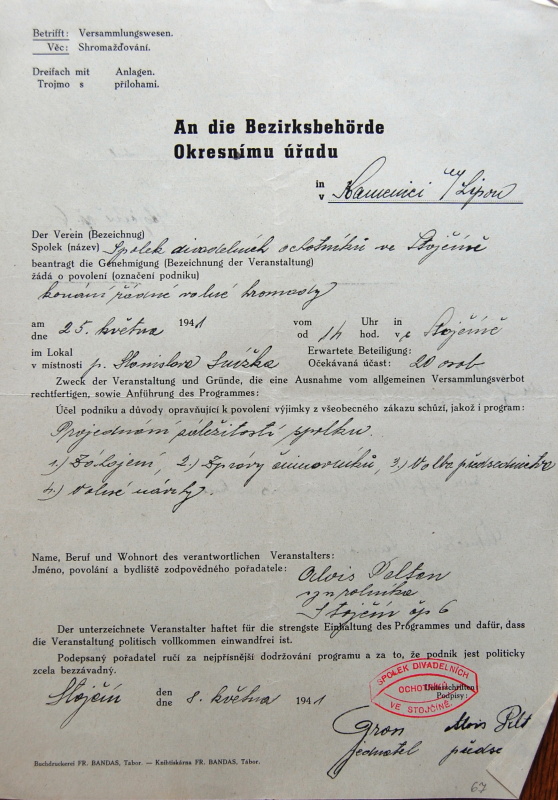 Betrifft: Versammlungswesen.
Věc: Shromažďování.
Dreifach mit Anlagen.
Trojmo s přílohami.
An die Bezirksbehörde
Okresnímu úřadu
in
v Kamenici n/Lipou
Der Verein (Bezeichnug)
Spolek (název) Spolek divadelních ochotníků ve Stojčíně
beantragt die Genehmigung (Bezeichnung der Veranstaltung)
žádá o povolení (označení podniku)
konání řádné valné hromady
am vom Uhr in
dne 25. května 1941 od 14 hod. ve Stojčíně
im Lokal Erwartete Beteiligung:
v místnosti p. Stanislava Očekávaná účast: 20 osob
Zweck der Veranstaltung und Gründe, die eine Ausnahme vom allgemeinen Versammlungsverbot
rechtfertigen, sowie Anführung des Programmes:
Účel podniku a důvody opravňující k povolení výjimky z všeobecného zákazu schůzí, jakož i program:
Projednání záležitostí spolku.
1.) Zahájení, 2.) Zprávy činovníků, 3.) Volba předsednictva
4.) Volné návrhy.
Name, Beruf und Wohnort des verantwortlichen Veranstalters:
Jméno, povolání a bydliště zodpovědného pořadatele: Alois
Stojčín čp 6
Der unterzeichnete Veranstalter haftet für die strengste Einhaltung des Programmes und dafür, dass
die Veranstaltung politisch vollkommen einwandfrei ist.
Podepsaný pořadatel ručí za nejpřísnější dodržování programu a za to, že podnik jest politicky
zcela bezzávadný.
Stojčín den
dne 8. května 1941
SPOLEK DIVADELNÍCH
OCHOTNÍKŮ
VE STOJČÍNĚ.
Unterschriften
Podpisy:
Alois
jednatel předse
Buchdruckerei FR. BANDAS, Tabor. — Knihtiskárna FR. BANDAS, Tábor.
67